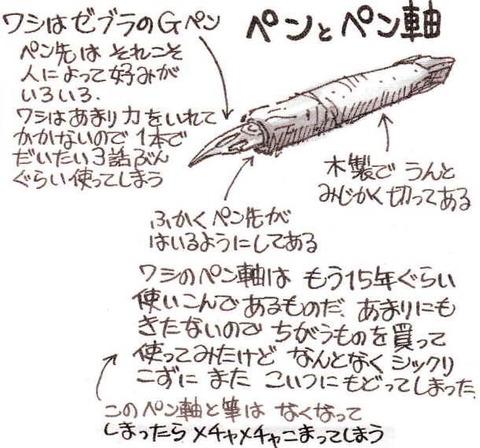 ペンとペン軸
ワシはゼブラのGペン
ペン先は それこそ
人によって好みが
いろいろ.
ワシはあまり力をいれて
かかないので1本で
だいたい3話ぶん
ぐらい使ってしまう
木製で うんと
みじかく切ってある
ふかくペン先が
はいるようにしてある
ワシのペン軸は もう15年ぐらい
使いこんであるものだ、あまりにも
きたないので ちがうものを買って
使ってみたけど なんとなく シックリ
こずに また こいつにもどってしまった
このペン軸と筆は なくなって
しまったら メチャメチャこまってしまう